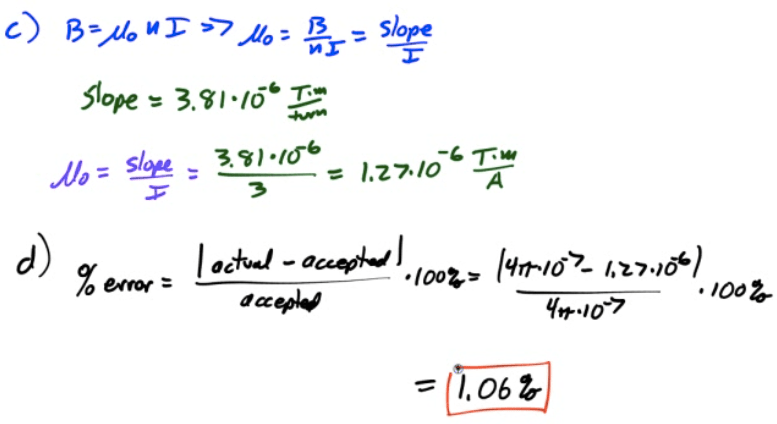 c) B = μ₀ n I ⇒ μ₀ = B/(nI) = slope/I
Slope = 3.81·10⁻⁶ T·m/turn
μ₀ = slope/I = 3.81·10⁻⁶/3 = 1.27·10⁻⁶ T·m/A
d) % error = |actual - accepted|/accepted ·100% = |4π·10⁻⁷ - 1.27·10⁻⁶|/4π·10⁻⁷ ·100%
= 1.06%